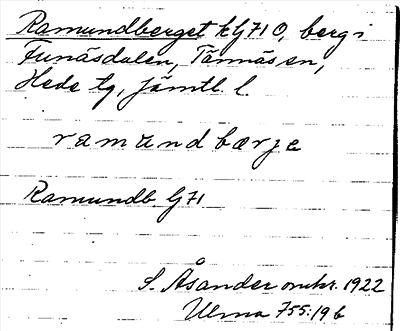 Ramundberget k lj 71 O, berg i
Funäsdalen, Tännäs sn,
Hede tg, Jämtl. l.
ramundbærje
Ramundb lj 71
S. Åsander omkr. 1922
Ulma 755:19 b